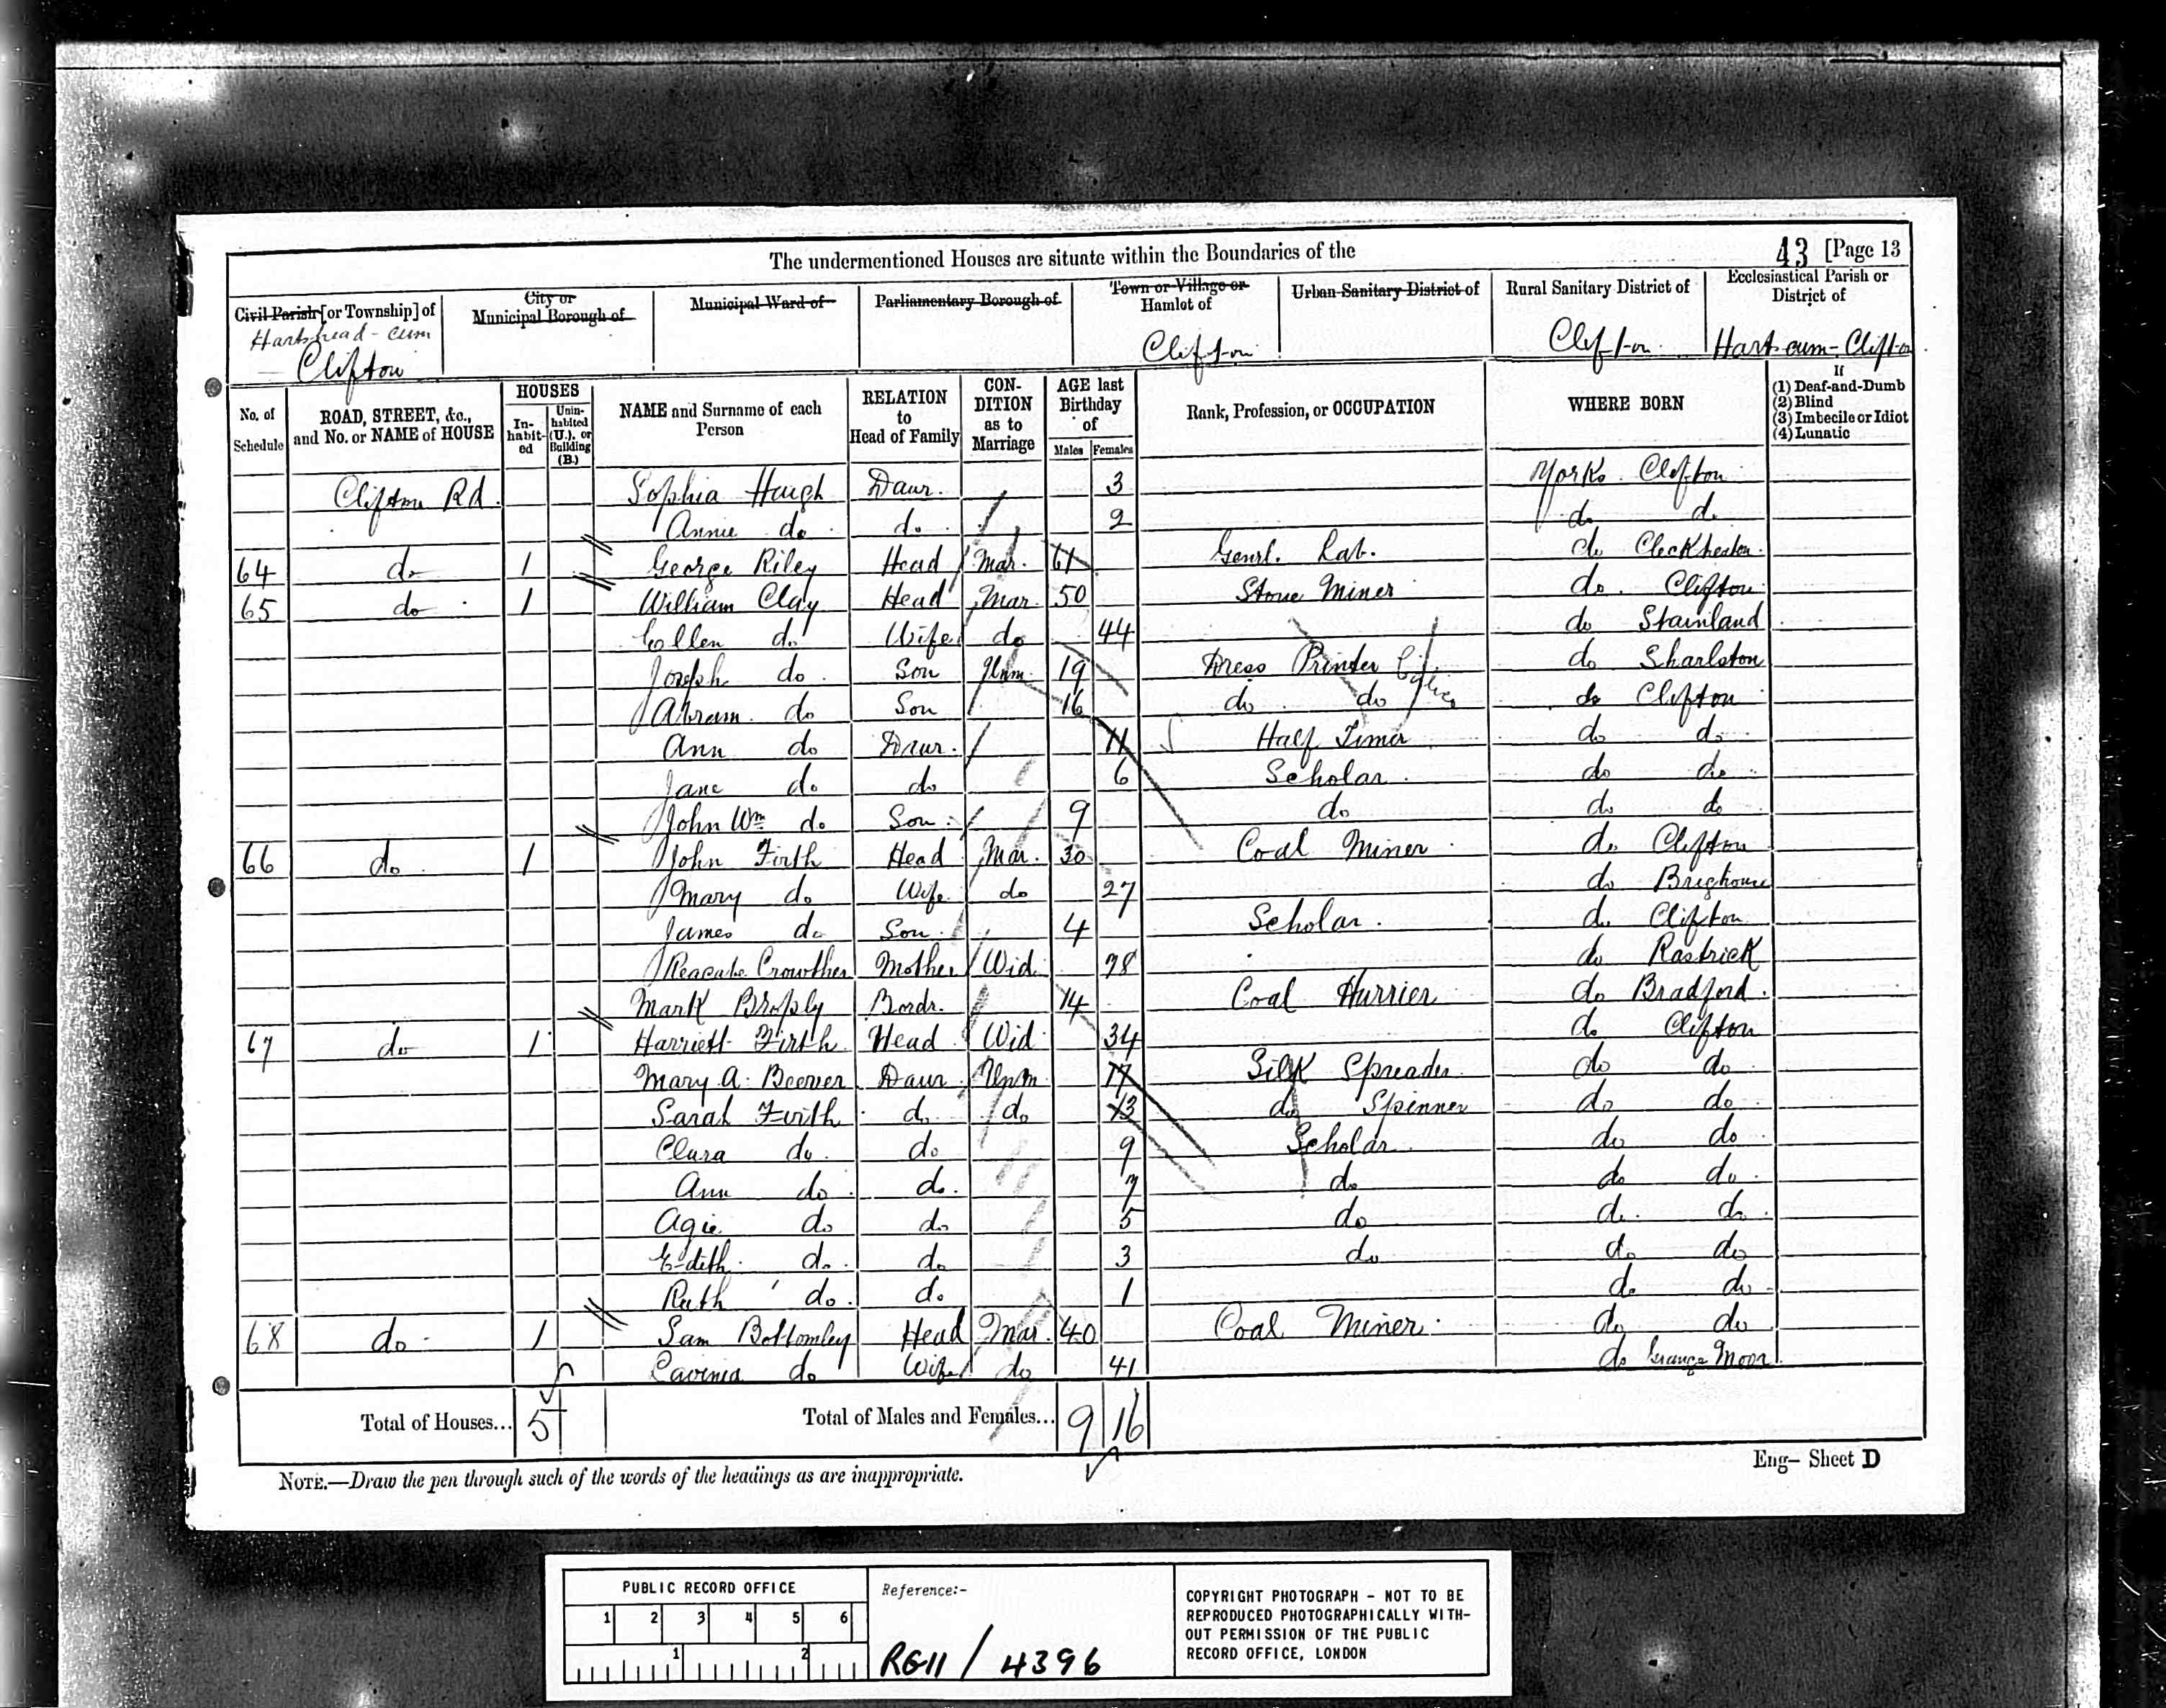 The undermentioned Houses are situate within the Boundaries of the
43 [Page 13
Civil Parish [or Township] of
City or Municipal Borough of
Municipal Ward of
Parliamentary Borough of
Town or Village or Hamlet of
Urban Sanitary District of
Rural Sanitary District of
Ecclesiastical Parish or District of
Hartshead-cum Clifton
Clifton
Clifton
Hart-cum-Clifton
No. of Schedule
ROAD, STREET, &c., and No. or NAME of HOUSE
HOUSES
In-habit-ed
Unin-habited (U.), or Building (B.)
NAME and Surname of each Person
RELATION to Head of Family
CON-DITION as to Marriage
AGE last Birthday of
Males
Females
Rank, Profession, or OCCUPATION
WHERE BORN
If (1) Deaf-and-Dumb (2) Blind (3) Imbecile or Idiot (4) Lunatic
Clifton Rd. Sophia Haigh Daur. 3 Yorks. Clifton
Annie do do 2 do do
64 do 1 George Riley Head Mar. 61 Genrl. Lab. do Cleckheaton
65 do 1 William Clay Head Mar. 50 Stone Miner do Clifton
Ellen do Wife do 44 do Stainland
Joseph do Son Unm. 19 Dress Printer Calico do Sharlston
Abram do Son 16 do do do Clifton
Ann do Daur. 11 Half Timer do do
Jane do do 6 Scholar do do
John Wm do Son 9 do do do
66 do 1 John Firth Head Mar. 30 Coal Miner do Clifton
Mary do Wife do 27 do Brighouse
James do Son 4 Scholar do Clifton
Crowther Mother Wid. 78 do Rastrick
Mark Bordr. 14 Coal Hurrier do Bradford
67 do 1 Harriett Firth Head Wid 34 do Clifton
Mary A. Beever Daur Unm 17 Silk Spreader do do
Sarah Firth do do 13 do Spinner do do
Clara do do 9 Scholar do do
Ann do do 7 do do do
Agie do do 5 do do do
Edith do do 3 do do do
Ruth do do 1 do do
68 do 1 Sam Bottomley Head Mar. 40 Coal Miner do do
Lavinia do Wife do 41 do Grange Moor
Total of Houses... 5
Total of Males and Females... 9 16
NOTE.—Draw the pen through such of the words of the headings as are inappropriate.
Eng— Sheet D
PUBLIC RECORD OFFICE
1 2 3 4 5 6
1 2
Reference:-
RG11 / 4396
COPYRIGHT PHOTOGRAPH - NOT TO BE
REPRODUCED PHOTOGRAPHICALLY WITH-
OUT PERMISSION OF THE PUBLIC
RECORD OFFICE, LONDON